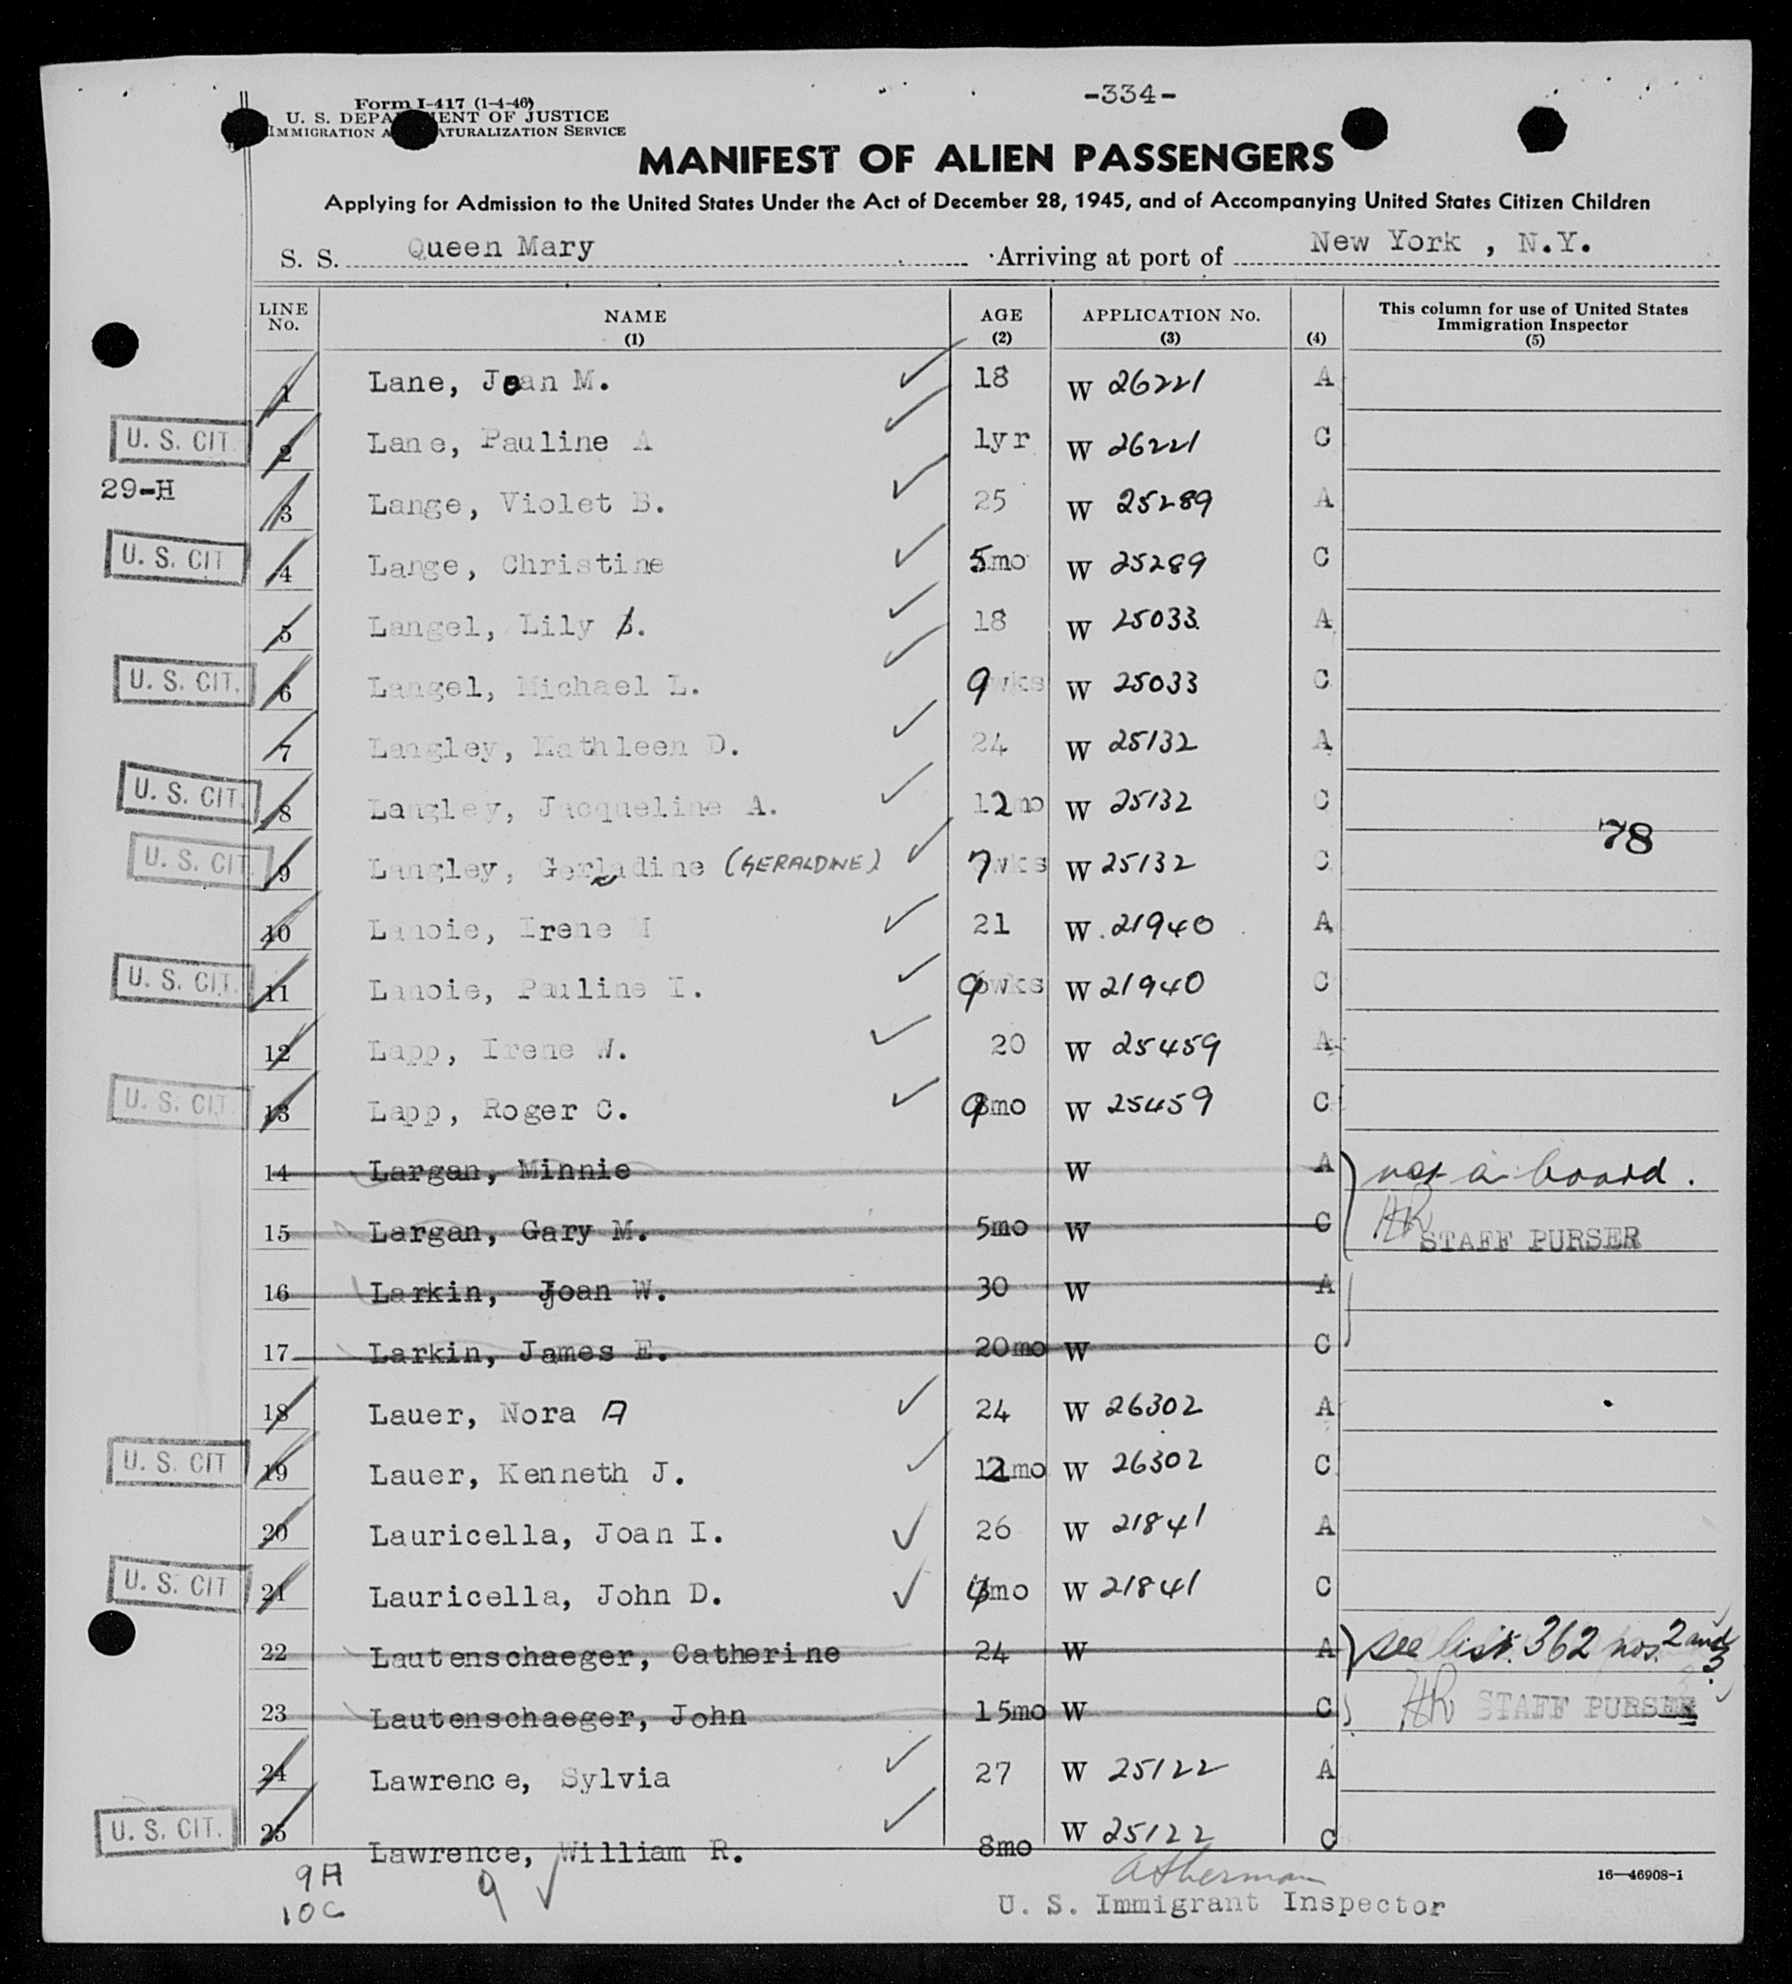 -334-
Form I-417 (1-4-46)
U. S. DEPA ENT OF JUSTICE
IMMIGRATION A ATURALIZATION SERVICE
MANIFEST OF ALIEN PASSENGERS
Applying for Admission to the United States Under the Act of December 28, 1945, and of Accompanying United States Citizen Children
S. S. Queen Mary Arriving at port of New York , N.Y.
LINE No. NAME (1) AGE (2) APPLICATION No. (3) (4) This column for use of United States Immigration Inspector (5)
1 Lane, Jean M. 18 W 26221 A
U. S. CIT. 2 Lane, Pauline A 1yr W 26221 C
29-H
3 Lange, Violet B. 25 W 25289 A
U. S. CIT 4 Lange, Christine 5mo W 25289 C
5 Langel, Lily B. 18 W 25033 A
U. S. CIT. 6 Langel, Michael L. 9wks W 25033 C
7 Langley, Kathleen D. 24 W 25132 A
U. S. CIT. 8 Langley, Jacqueline A. 12mo W 25132 C
78
U. S. CIT. 9 Langley, Gerladine (GERALDINE) 7wks W 25132 C
10 Lanoie, Irene 21 W 21940 A
U. S. CIT. 11 Lanoie, Pauline I. 9wks W 21940 C
12 Lapp, Irene W. 20 W 25459 A
U. S. CIT. 13 Lapp, Roger C. 9mo W 25459 C
14 Largan, Minnie W A not a board.
15 Largan, Gary M. 5mo W C HR STAFF PURSER
16 Larkin, Joan W. 30 W A
17 Larkin, James E. 20mo W C
18 Lauer, Nora A 24 W 26302 A
U. S. CIT 19 Lauer, Kenneth J. 12mo W 26302 C
20 Lauricella, Joan I. 26 W 21841 A
U. S. CIT 21 Lauricella, John D. 4mo W 21841 C
22 Lautenschaeger, Catherine 24 W A see list 362 nos. 2 and 3
23 Lautenschaeger, John 15mo W C HR STAFF PURSER
24 Lawrence, Sylvia 27 W 25122 A
U. S. CIT. 25 Lawrence, William R. 8mo W 25122 C
9A
10C
9
16—46908-1
U. S. Immigrant Inspector